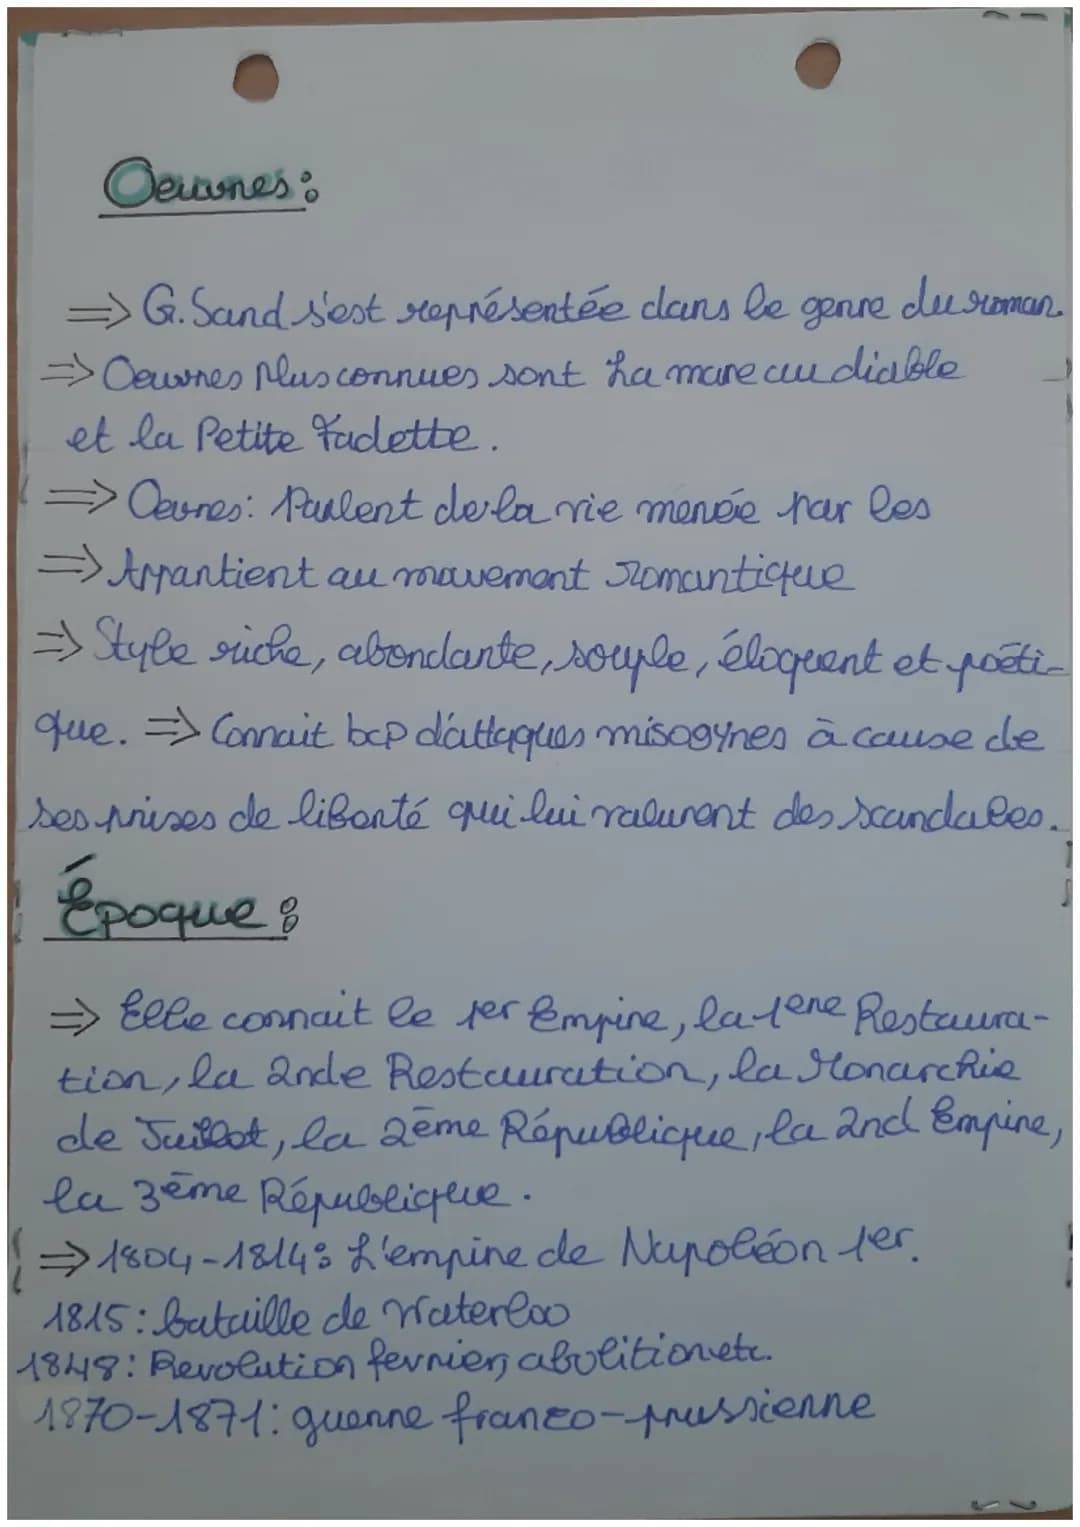 Oeuvres:
=> G.Sand s'est représentée dans le genre du roman.
=> Oeuvres plus connues sont La mare au diable
et la Petite Fadette.
=> Oevres: Parlent de la vie menée par les
=> Appartient au mouvement romantique
=> Style riche, abondante, souple, éloquent et poéti-
que. => Connait bcp d'attaques misogynes à cause de
ses prises de liberté qui lui valurent des scandales.
Époque:
=> Elle connait le 1er Empire, la 1ère Restaura-
tion, la 2nde Restauration, la Monarchie
de Juillet, la 2ème République, la 2nd Empire,
la 3ème République.
=> 1804-1814: L'empire de Napoléon 1er.
1815: bataille de Waterloo
1848: Revolution fevrier, abolition etc.
1870-1871: guerre franco-prussienne